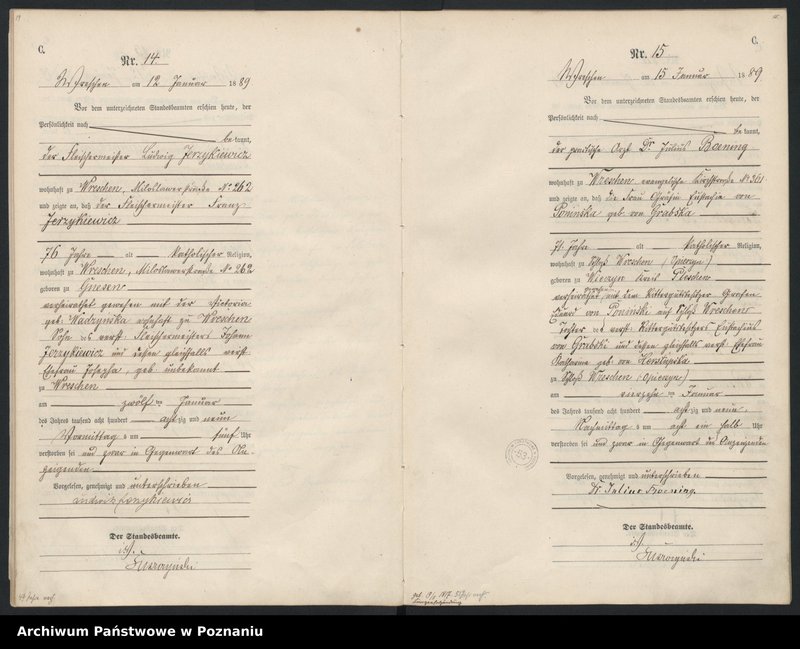 C.
Nr. 14.
Wreschen am 12 Januar 1889
Vor dem unterzeichneten Standesbeamten erschien heute, der
Persönlichkeit nach
be kannt,
der Fleischermeister Ludwig Jerzykiewicz
wohnhaft zu Wreschen, Miloslawerstraße No 262
und zeigte an, daß der Fleischermeister Franz
Jerzykiewicz
76 Jahre alt Katholischer Religion,
wohnhaft zu Wreschen, Miloslawerstraße No 262
geboren zu Gnesen
verheirathet gewesen mit der Victoria
geb. wohnhaft zu Wreschen
Sohn des verst. Fleischermeisters Johann
Jerzykiewicz und dessen gleichfalls verst.
Ehefrau Josepha, geb. unbekannt
zu Wreschen
am zwölf ten Januar
des Jahres tausend acht hundert acht zig und neun
Vormittag s um fünf Uhr
verstorben sei und zwar in Gegenwart des An-
zeigenden
Vorgelesen, genehmigt und unterschrieben
Ludwik Jerzykiewicz
Der Standesbeamte.
C.
Nr. 15
Wreschen am 15 Januar 1889
Vor dem unterzeichneten Standesbeamten erschien heute, der
Persönlichkeit nach
be kannt,
der practische Arzt Dr. Julius Boening
wohnhaft zu Wreschen evangelische Kirchstraße No 361
und zeigte an, daß die Frau Gräfin Eustachia von
Poninska geb. von Grabska
71 Jahre alt Katholischer Religion,
wohnhaft zu Schloß Wreschen (Opieszyn)
geboren zu Kreis Pleschen
verheirathet gewesen mit dem Rittergutsbesitzer Grafen
Eduard von Poninski auf Schloß Wreschen
Tochter des verst. Rittergutsbesitzers Eustachius
von Grabski und dessen gleichfalls verst. Ehefrau
Katharina geb. von
zu Schloß Wreschen (Opieszyn)
am vierzehn ten Januar
des Jahres tausend acht hundert acht zig und neun
Nachmittag s um acht ein halb Uhr
verstorben sei und zwar in Gegenwart des Anzeigenden
Vorgelesen, genehmigt und unterschrieben
Dr. Julius Boening.
Der Standesbeamte.
Archiwum Państwowe w Poznaniu